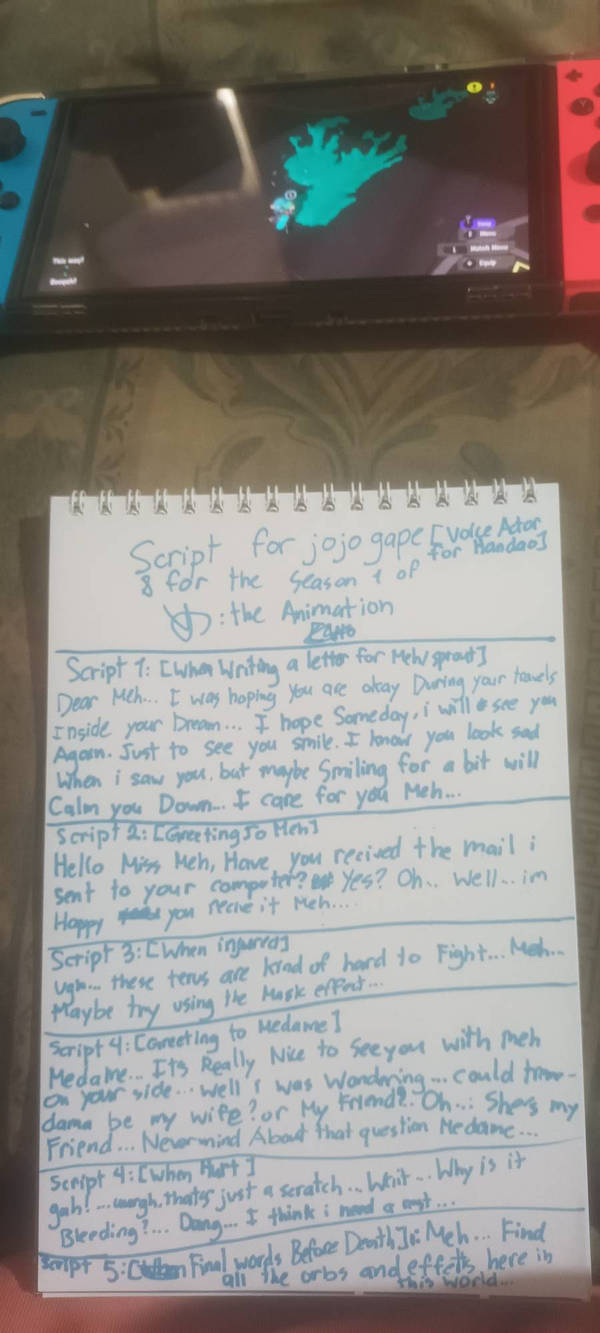 This way!
Booyah!
Swap
Menu
Match Menu
Equip
Script for jojo gape [Voice Actor
for Mandao]
& for the season 1 of
: the Animation
Script 1: [When Writing a letter for Meh/sprout]
Dear Meh... I was hoping you are okay During your travels
Inside your Dream... I hope Someday, i will see you
Again. Just to see you smile. I know you look sad
When i saw you, but maybe Smiling for a bit will
Calm you Down... I care for you Meh...
Script 2: [Greeting to Meh]
Hello Miss Meh, Have you recived the mail i
sent to your computer? Yes? Oh.. Well... im
Happy you recive it Meh....
Script 3: [When injured]
Ugh... these terus are kind of hard to Fight... Meh...
Maybe try using the Mask effect...
Script 4: [Greeting to Medame]
Medame... Its Really Nice to see you with meh
on your side... Well I was Wondering... could
dama be my wife? or My Friend? Oh... Shes my
Friend... Nevermind About that question Medame...
Script 4: [When Hurt]
gah! ...uurgh, thats just a scratch... Wait... Why is it
Bleeding?... Dang... I think i need a
Script 5: [Final words Before Death]: Meh... Find
all the orbs and effects here in
this world...